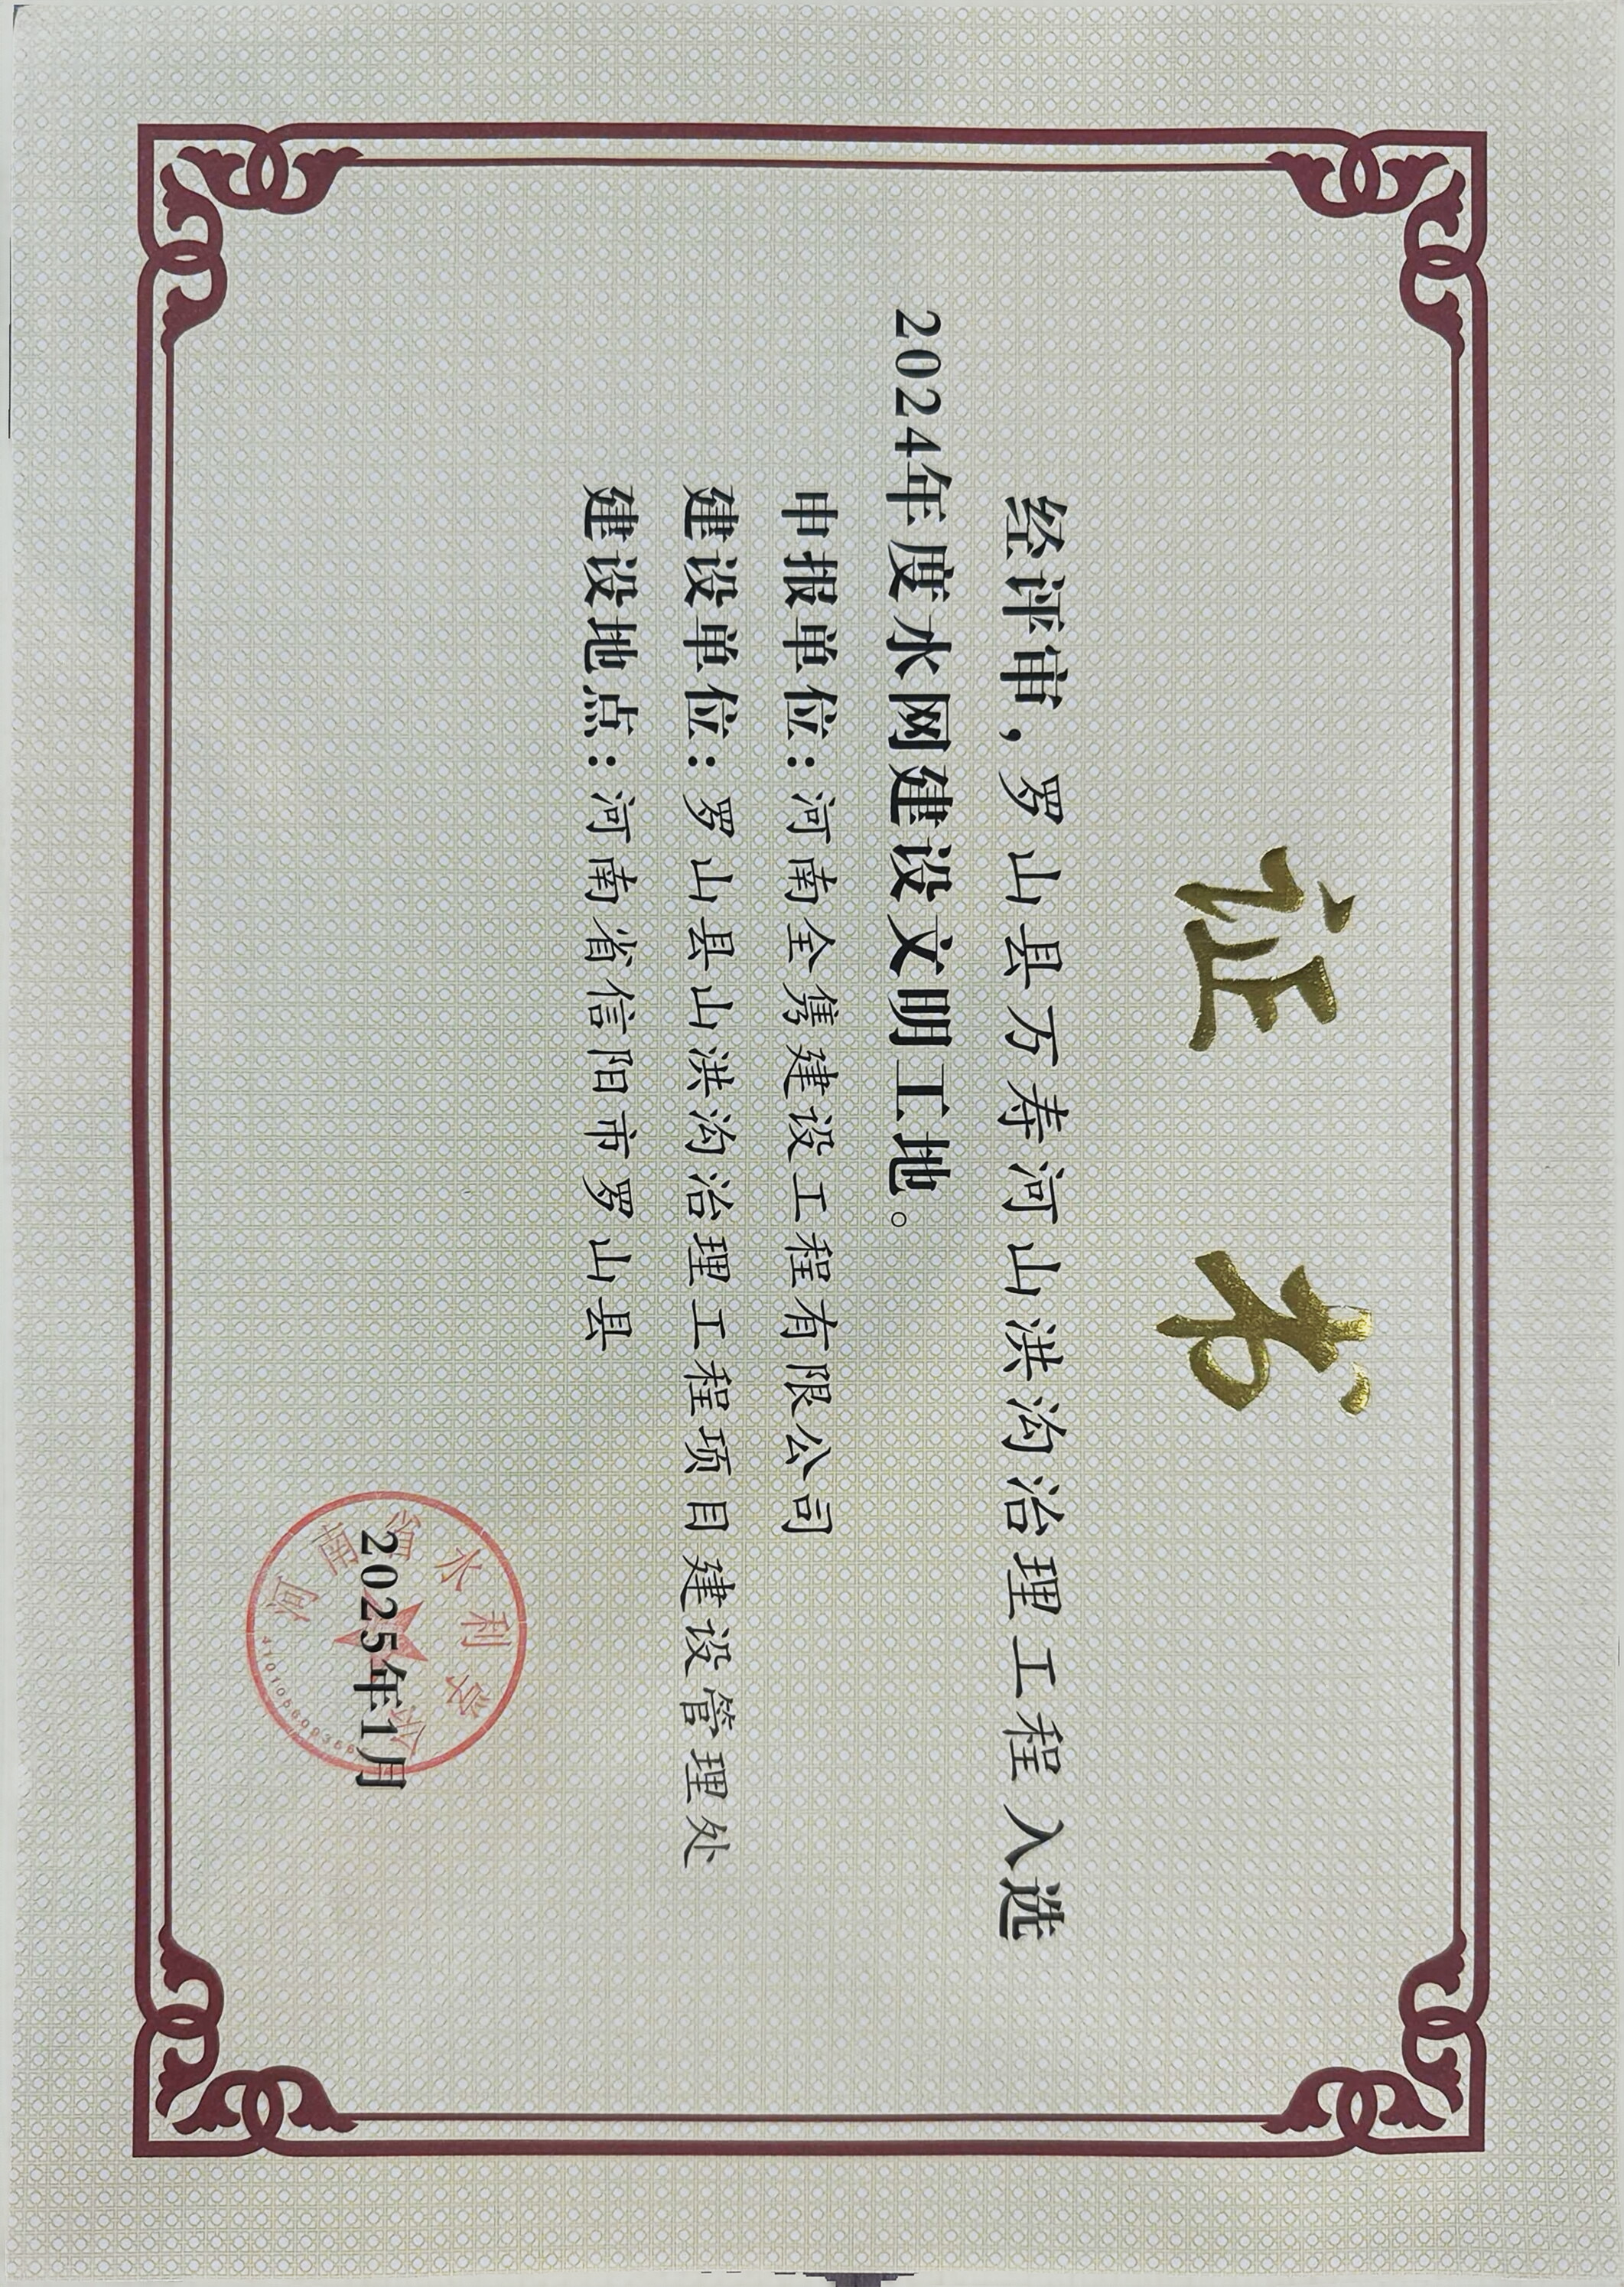 证书
经评审，罗山县万寿河山洪沟治理工程入选
2024年度水网建设文明工地。
申报单位：河南全隽建设工程有限公司
建设单位：罗山县山洪沟治理工程项目建设管理处
建设地点：河南省信阳市罗山县
河南省水利学会
2025年1月